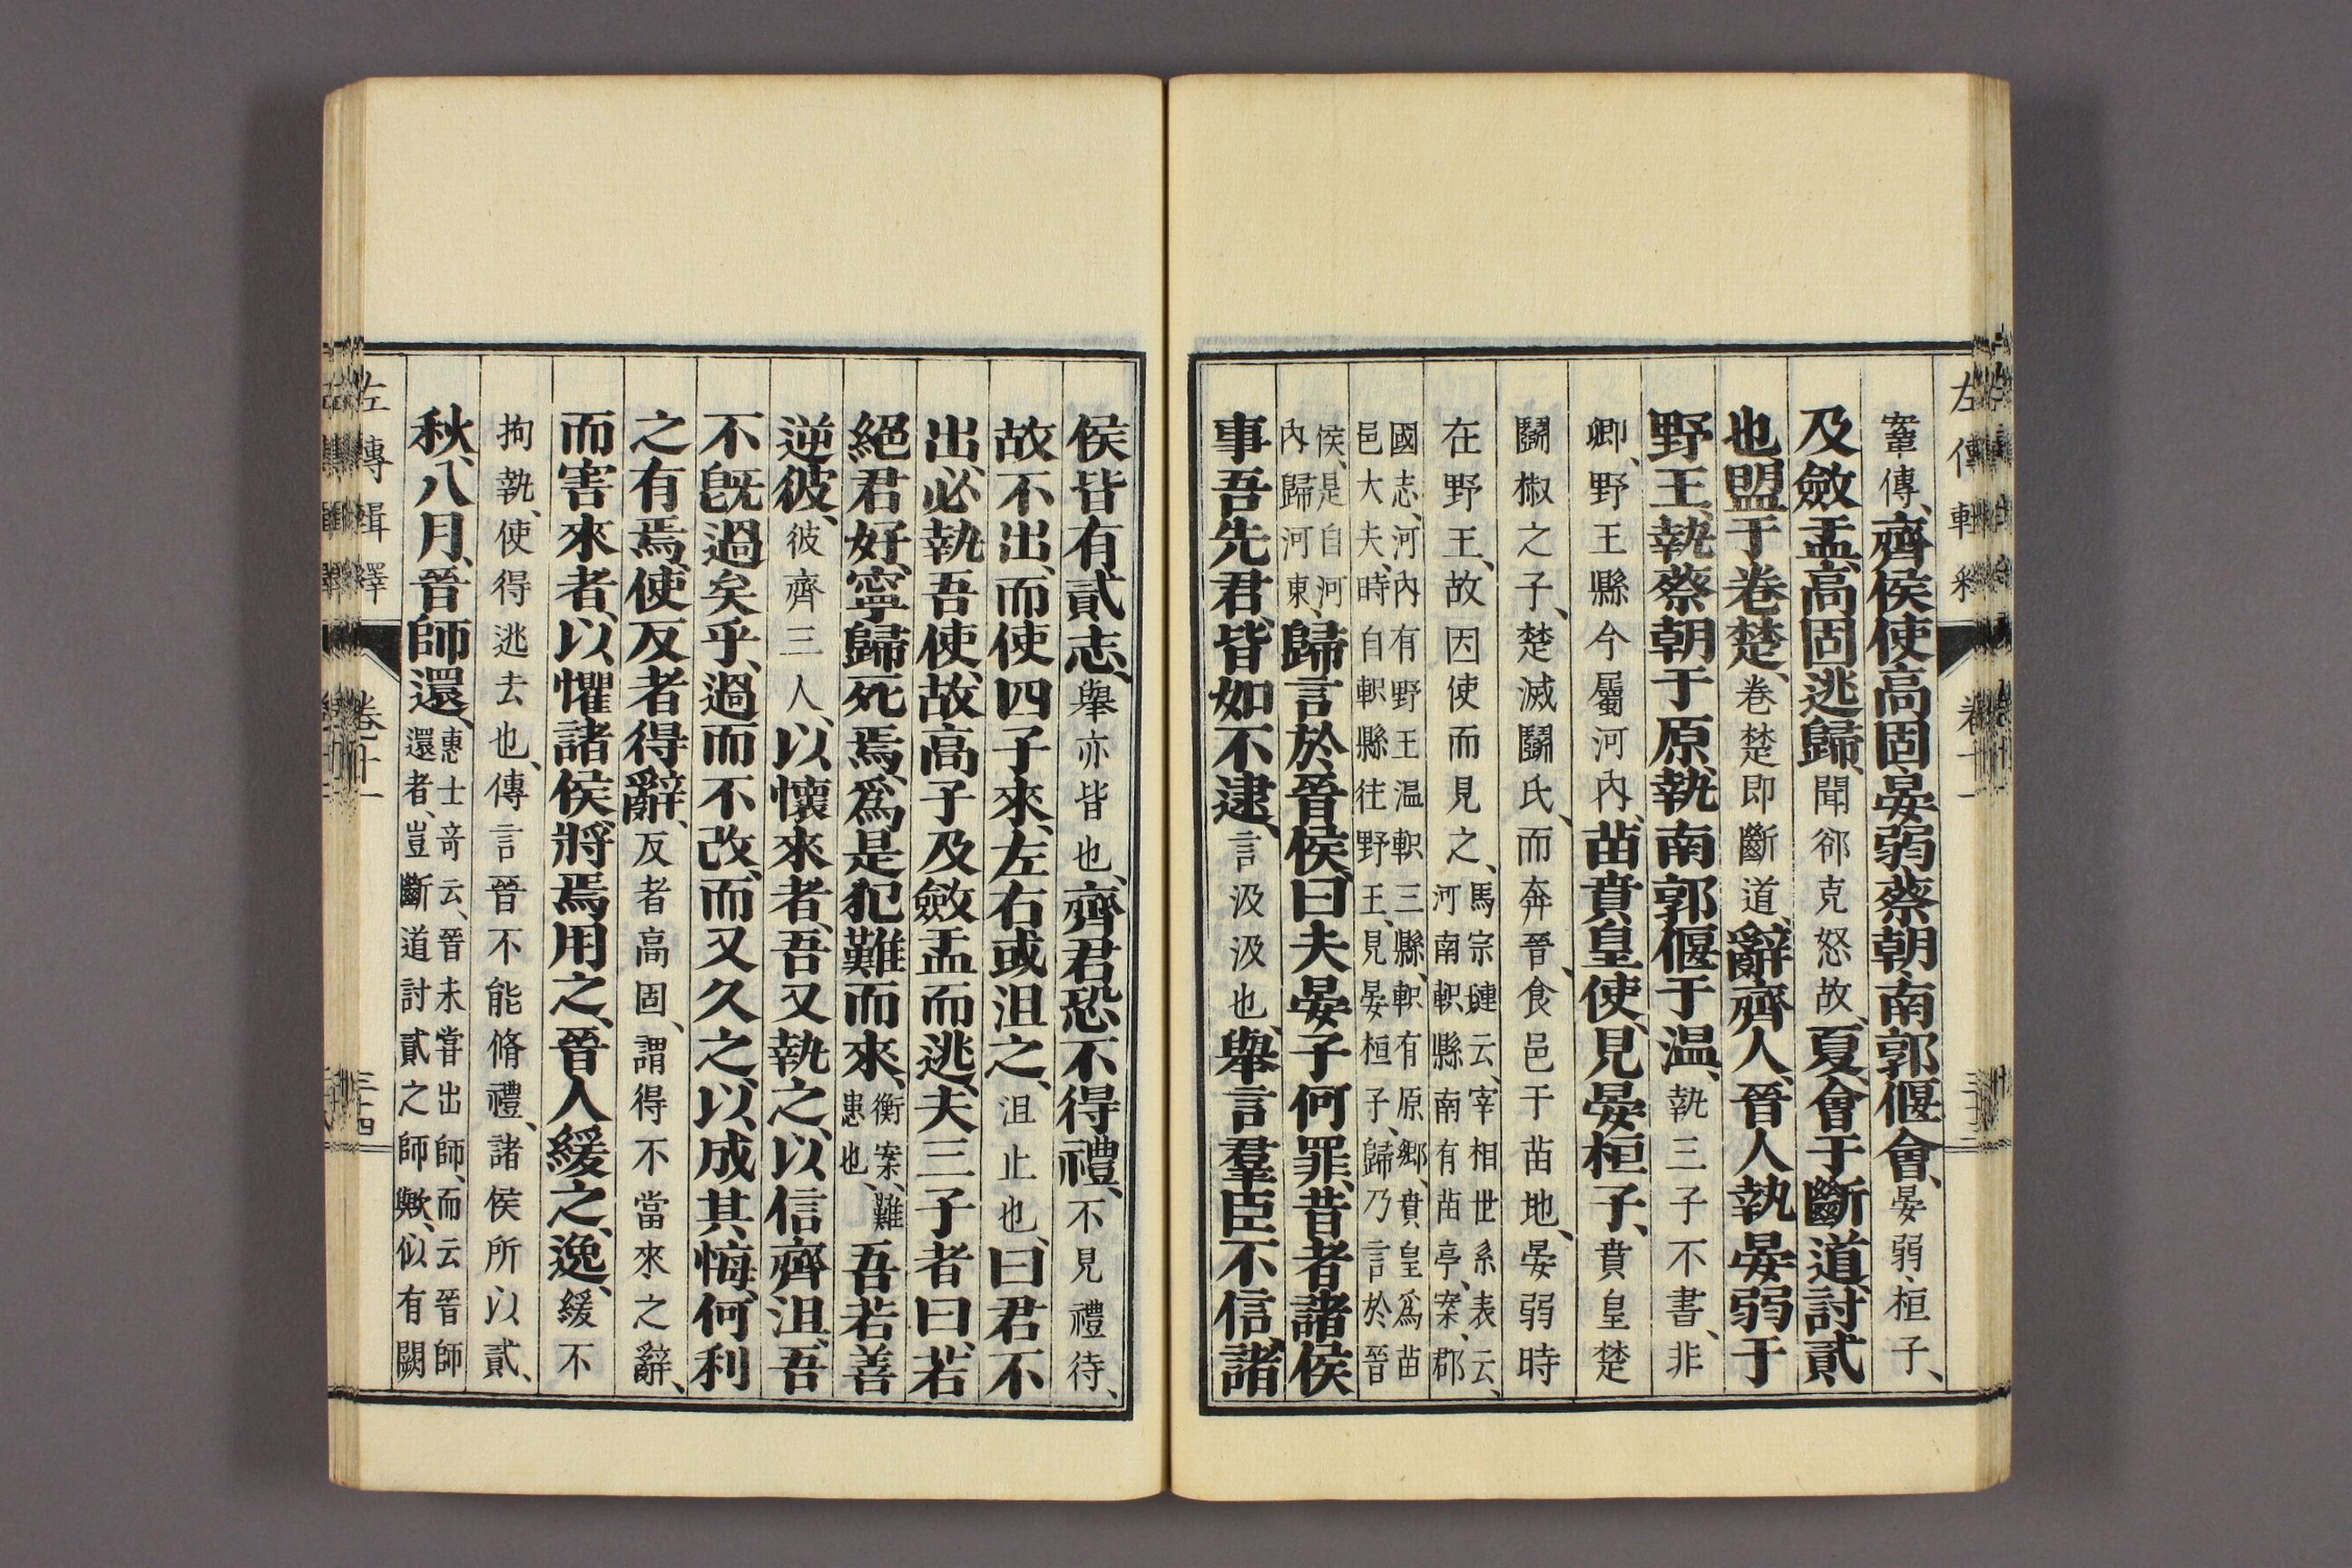 鞌傳、齊侯使高固晏弱蔡朝南郭偃會、晏弱、桓子、
及斂盂、高固逃歸、聞郤克怒故、夏、會于斷道、討貳
也、盟于卷楚、卷楚即斷道、辭齊人、晉人執晏弱于
野王、執蔡朝于原、執南郭偃于温、執三子不書、非
卿、野王縣今屬河內、苗賁皇使、見晏桓子、賁皇楚
鬬椒之子、楚滅鬬氏、而奔晉、食邑于苗地、晏弱時
在野王、故因使而見之、馬宗璉云、宰相世系表云、
河南軹縣南有苗亭、案、郡
國志、河內有野王温軹三縣、軹有原鄉、賁皇爲苗
邑大夫、時自軹縣往野王、見晏桓子、歸乃言於晉
侯、是自河
內歸河東、歸言於晉侯、曰夫晏子何罪、昔者諸侯
事吾先君、皆如不逮、言汲汲也、舉言羣臣不信、諸
侯皆有貳志、舉亦皆也、齊君恐不得禮、不見禮待、
故不出、而使四子來、左右或沮之、沮止也、曰君不
出、必執吾使、故高子及斂盂而逃、夫三子者曰、若
絕君好、寧歸死焉、爲是犯難而來、衡案、難
患也、吾若善
逆彼、彼齊三人、以懷來者、吾又執之、以信齊沮、吾
不旣過矣乎、過而不改、而又久之、以成其悔、何利
之有焉、使反者得辭、反者高固、謂得不當來之辭、
而害來者、以懼諸侯、將焉用之、晉人緩之、逸、緩不
拘執、使得逃去也、傳言晉不能脩禮、諸侯所以貳、
秋、八月、晉師還、惠士奇云、晉未嘗出師、而云晉師
還者、豈斷道討貳之師歟、似有闕
左傳輯釋　卷十一